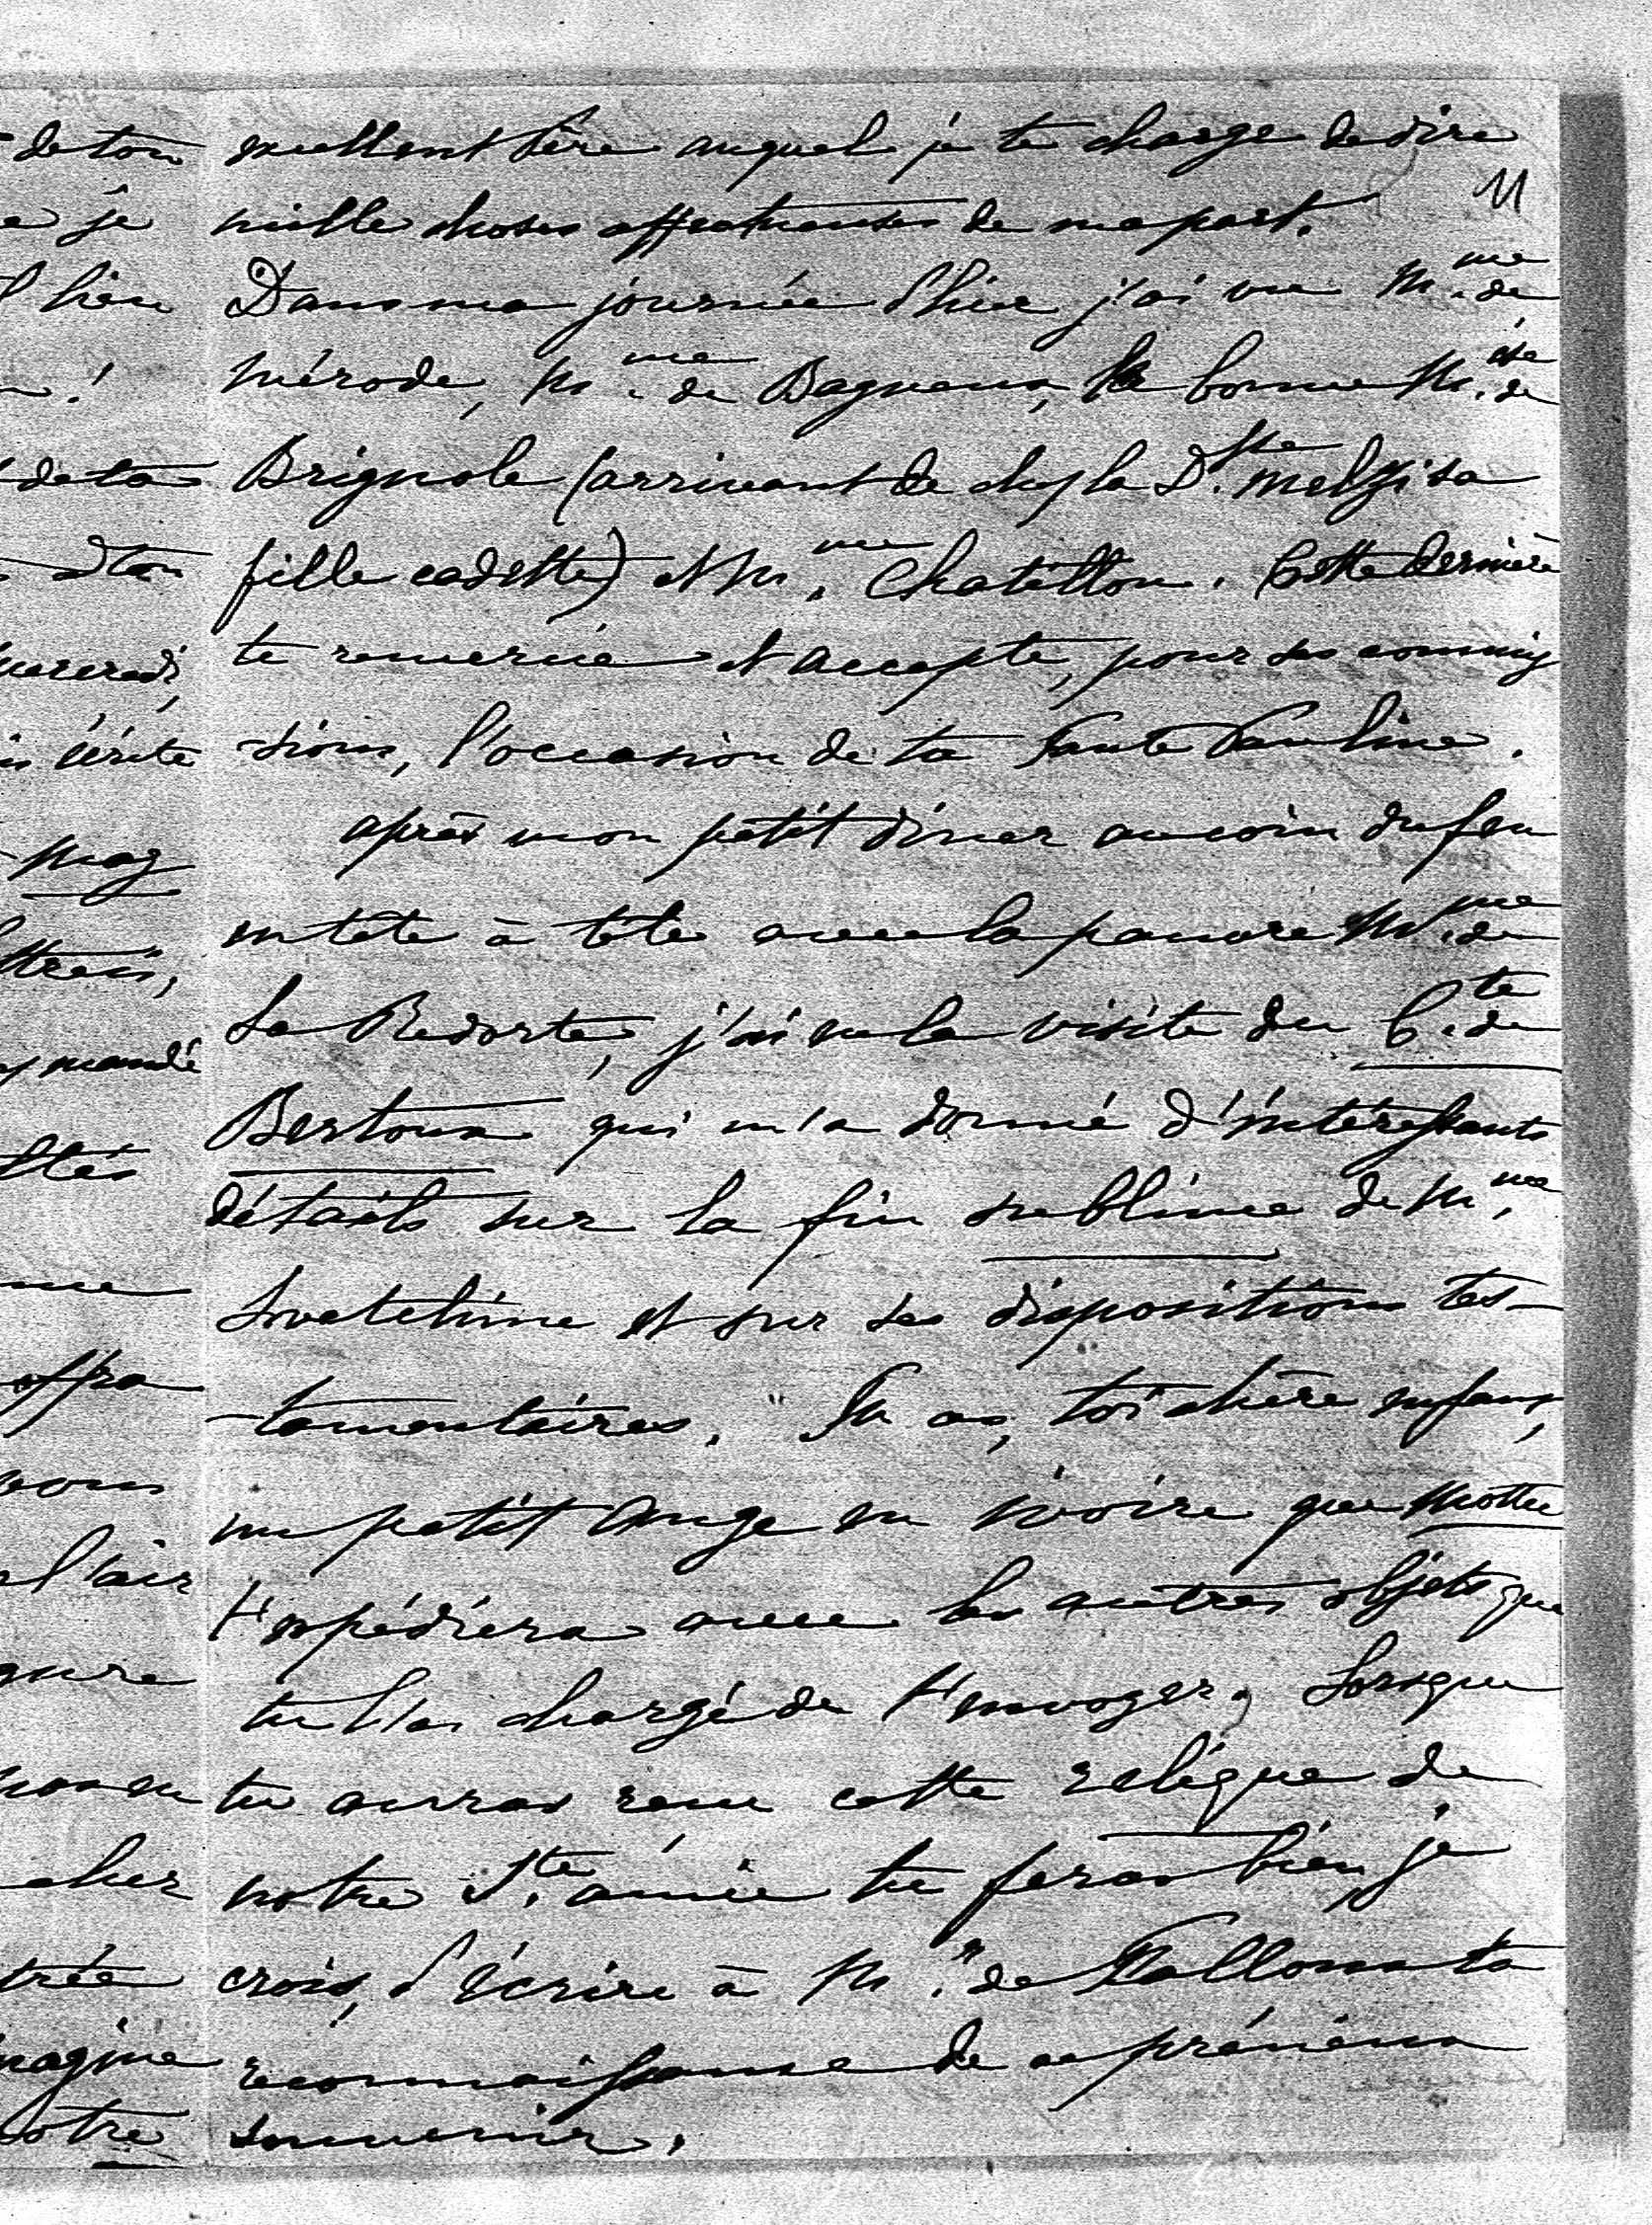 11
excellent Père auquel je te charge de dire
mille choses affectueuses de ma part.
Dans ma journée d'hier j'ai vu M.me de
Mérode, M.me de Bagneux, la bonne M.ise de
Brignole (arrivant de chez la D.sse Melzi sa
fille cadette) et M.me Chatillon. Cette dernière
te remercie et accepte, pour ses commis
sions, l'occasion de ta Tante Pauline.
après mon petit dîner au coin du feu
en tête à tête avec la pauvre M.me de
La Redorte, j'ai eu la visite du C.te de
Bertoux qui m'a donné d'intéressants
détails sur la fin sublime de M.me
Swetchine et sur ses dispositions tes-
-tamentaires. Tu as, toi chère enfant,
un petit Ange en ivoire que Mottu
t'expédiera avec les autres objets que
tu l'as chargé de t'envoyer. Lorsque
tu auras reçu cette relique de
notre S.te amie tu feras bien, je
crois, d'écrire à M.r de Falloux ta
reconnaissance de ce précieux
souvenir.
de ton
je
d'hier
de ta
mercredi,
écrite
mandé
offra
vous
l'air
cher
trée
magine
votre